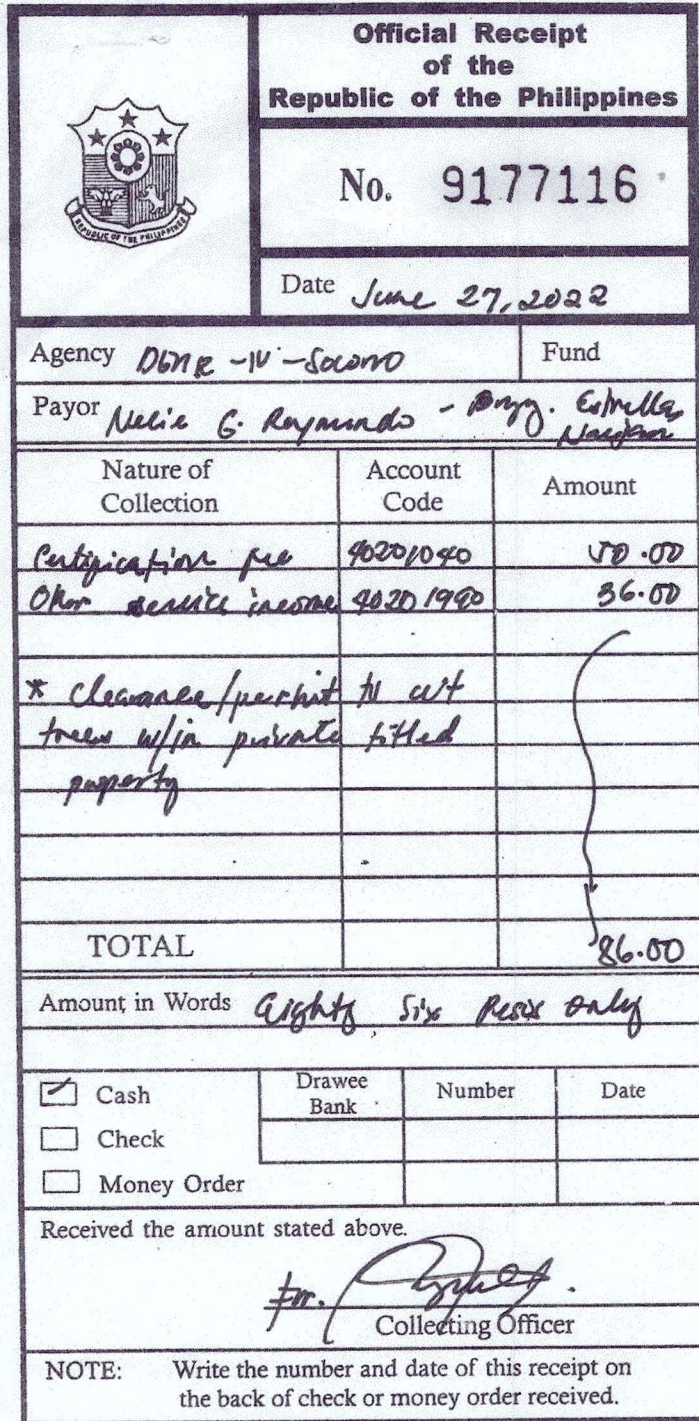 Official Receipt
of the
Republic of the Philippines
REPUBLIC OF THE PHILIPPINES
No. 9177116
Date June 27, 2022
Agency DENR - IV - Socorro Fund
Payor Nelie G. Raymundo - Brgy. Estrella,
Naujan
Nature of Collection Account Code Amount
Certification fee 40201040 50.00
Other service income 40201990 36.00
* Clearance/permit to cut
trees w/in private titled
property
TOTAL 86.00
Amount in Words Eighty Six Pesos Only
Cash Drawee Bank Number Date
Check
Money Order
Received the amount stated above.
For.
Collecting Officer
NOTE: Write the number and date of this receipt on
the back of check or money order received.